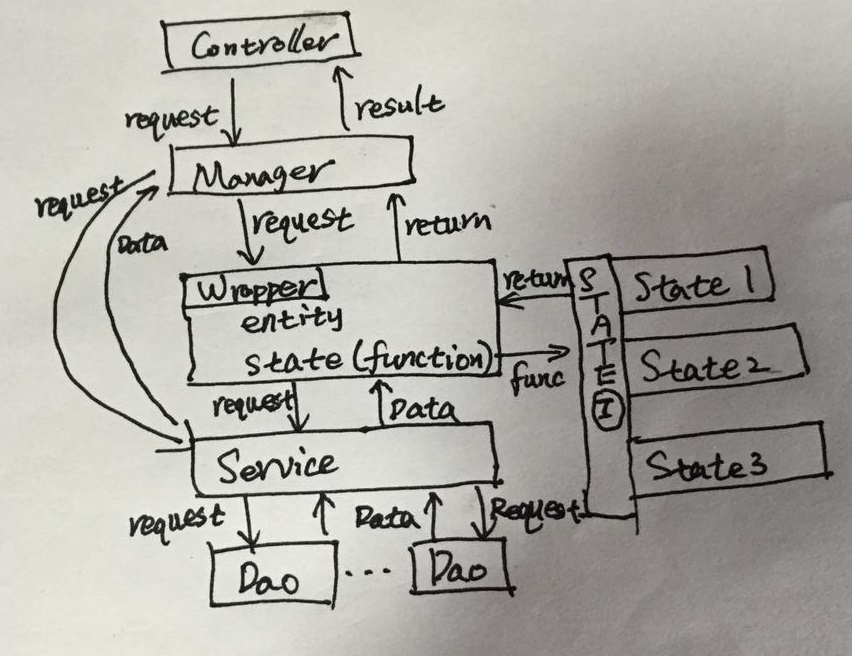 Controller
request
result
Manager
request
request
return
Data
Wrapper
entity
state (function)
return
func
STATE
I
State 1
State 2
State 3
request
Data
Service
request
Data
Request
Dao
...
Dao